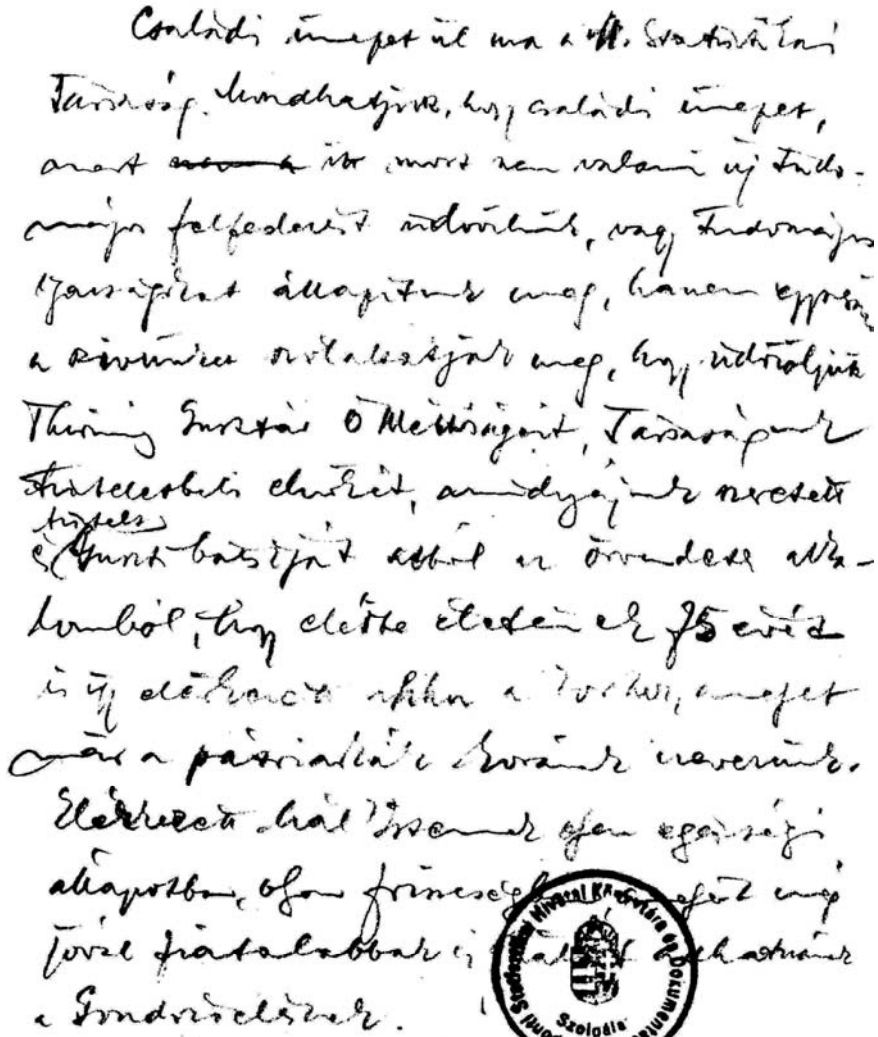 Családi ünnepet ül ma a M. Statisztikai
Társaság. Mondhatjuk, hogy családi ünnepet,
mert itt most nem valami új tudo-
mányos felfedezést üdvözlünk, vagy tudományos
igazságokat állapítunk meg, hanem egyszerűen
a szívünket szólaltatjuk meg, hogy üdvözöljük
Thirring Gusztáv Ő Méltóságát, Társaságunk
tiszteletbeli elnökét, amindnyájunk szeretett
tisztelt
és Guszti bácsiját abból az örvendetes alka-
lomból, hogy elérte életének 75 évét
és így elérkezett ahhoz a korhoz, amelyet
már a pátriarkák korának nevezünk.
Elérkezett hál' Istennek olyan egészségi
állapotban, olyan amelyet még
jóval fiatalabbak is
a Gondviselésnek.
Központi Statisztikai Hivatal Könyvtára és Dokumentációs
Szolgálat